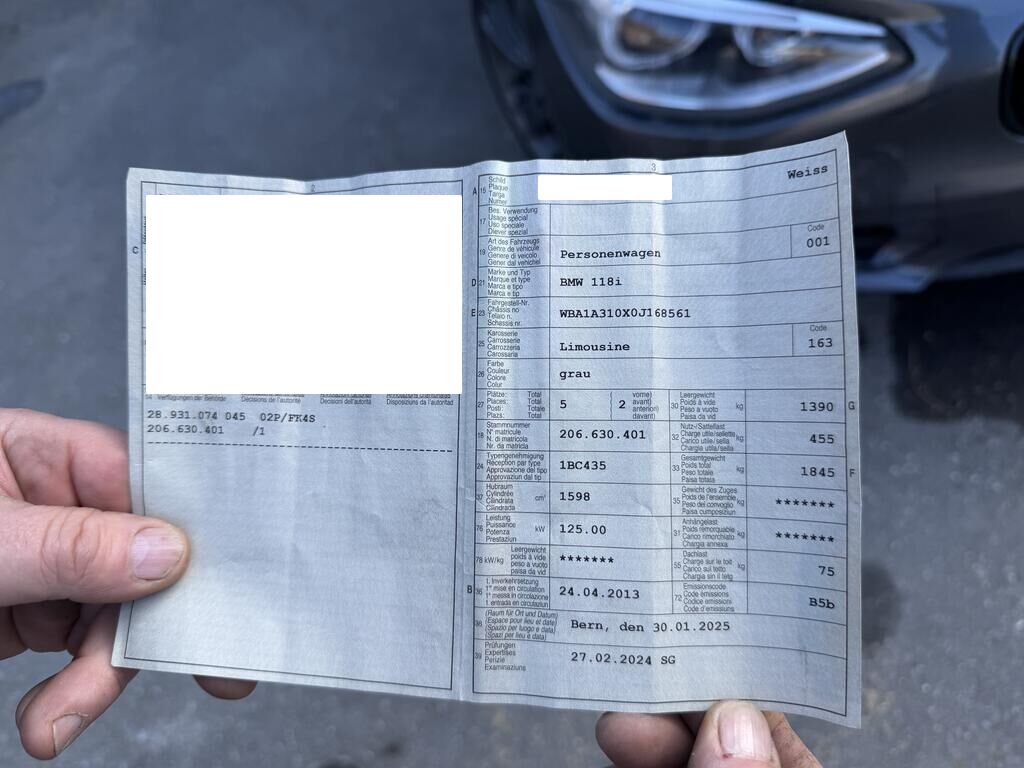 2
C
14 Verfügungen der Behörde Décisions de l'autorité Decisioni dell'autorità Disposiziuns da l'autoritad
28.931.074 045 02P/FK4S
206.630.401 /1
3
A 15 Schild
Plaque
Targa
Numer
Weiss
17 Bes. Verwendung
Usage spécial
Uso speciale
Diever spezial
19 Art des Fahrzeugs
Genre de véhicule
Genere di veicolo
Gener dal vehichel
Personenwagen
Code
001
D 21 Marke und Typ
Marque et type
Marca e tipo
Marca e tip
BMW 118i
E 23 Fahrgestell-Nr.
Châssis no
Telaio n.
Schassis nr.
WBA1A310X0J168561
25 Karosserie
Carrosserie
Carrozzeria
Carossaria
Limousine
Code
163
26 Farbe
Couleur
Colore
Colur
grau
27 Plätze: Total
Places: Total
Posti: Totale
Plazs: Total
5
( vorne)
2 avant)
anteriori)
davant)
30 Leergewicht
Poids à vide
Peso a vuoto
Paisa da vid
kg
1390 G
18 Stammnummer
N° matricule
N. di matricola
Nr. da matricla
206.630.401
32 Nutz-/Sattellast
Charge utile/sellette
Carico utile/sella
Chargia utila/sella
kg
455
24 Typengenehmigung
Réception par type
Approvazione del tipo
Approvaziun dal tip
1BC435
33 Gesamtgewicht
Poids total
Peso totale
Paisa totala
kg
1845 F
37 Hubraum
Cylindrée
Cilindrata
Cilindrada
cm³
1598
35 Gewicht des Zuges
Poids de l'ensemble
Peso del convoglio
Paisa cumposiziun
kg
*******
76 Leistung
Puissance
Potenza
Prestaziun
kW
125.00
31 Anhängelast
Poids remorquable
Carico rimorchiato
Chargia annexa
kg
*******
78 kW/kg Leergewicht
poids à vide
peso a vuoto
paisa da vid
*******
55 Dachlast
Charge sur le toit
Carico sul tetto
Chargia sin il tetg
kg
75
B 36 1. Inverkehrsetzung
1re mise en circulation
1a messa in circolazione
1. entrada en circulaziun
24.04.2013
72 Emissionscode
Code émissions
Codice emissioni
Code d'emissiuns
B5b
38 (Raum für Ort und Datum)
(Espace pour lieu et date)
(Spazio per luogo e data)
(Spazi per lieu e data)
Bern, den 30.01.2025
39 Prüfungen
Expertises
Perizie
Examinaziuns
27.02.2024 SG